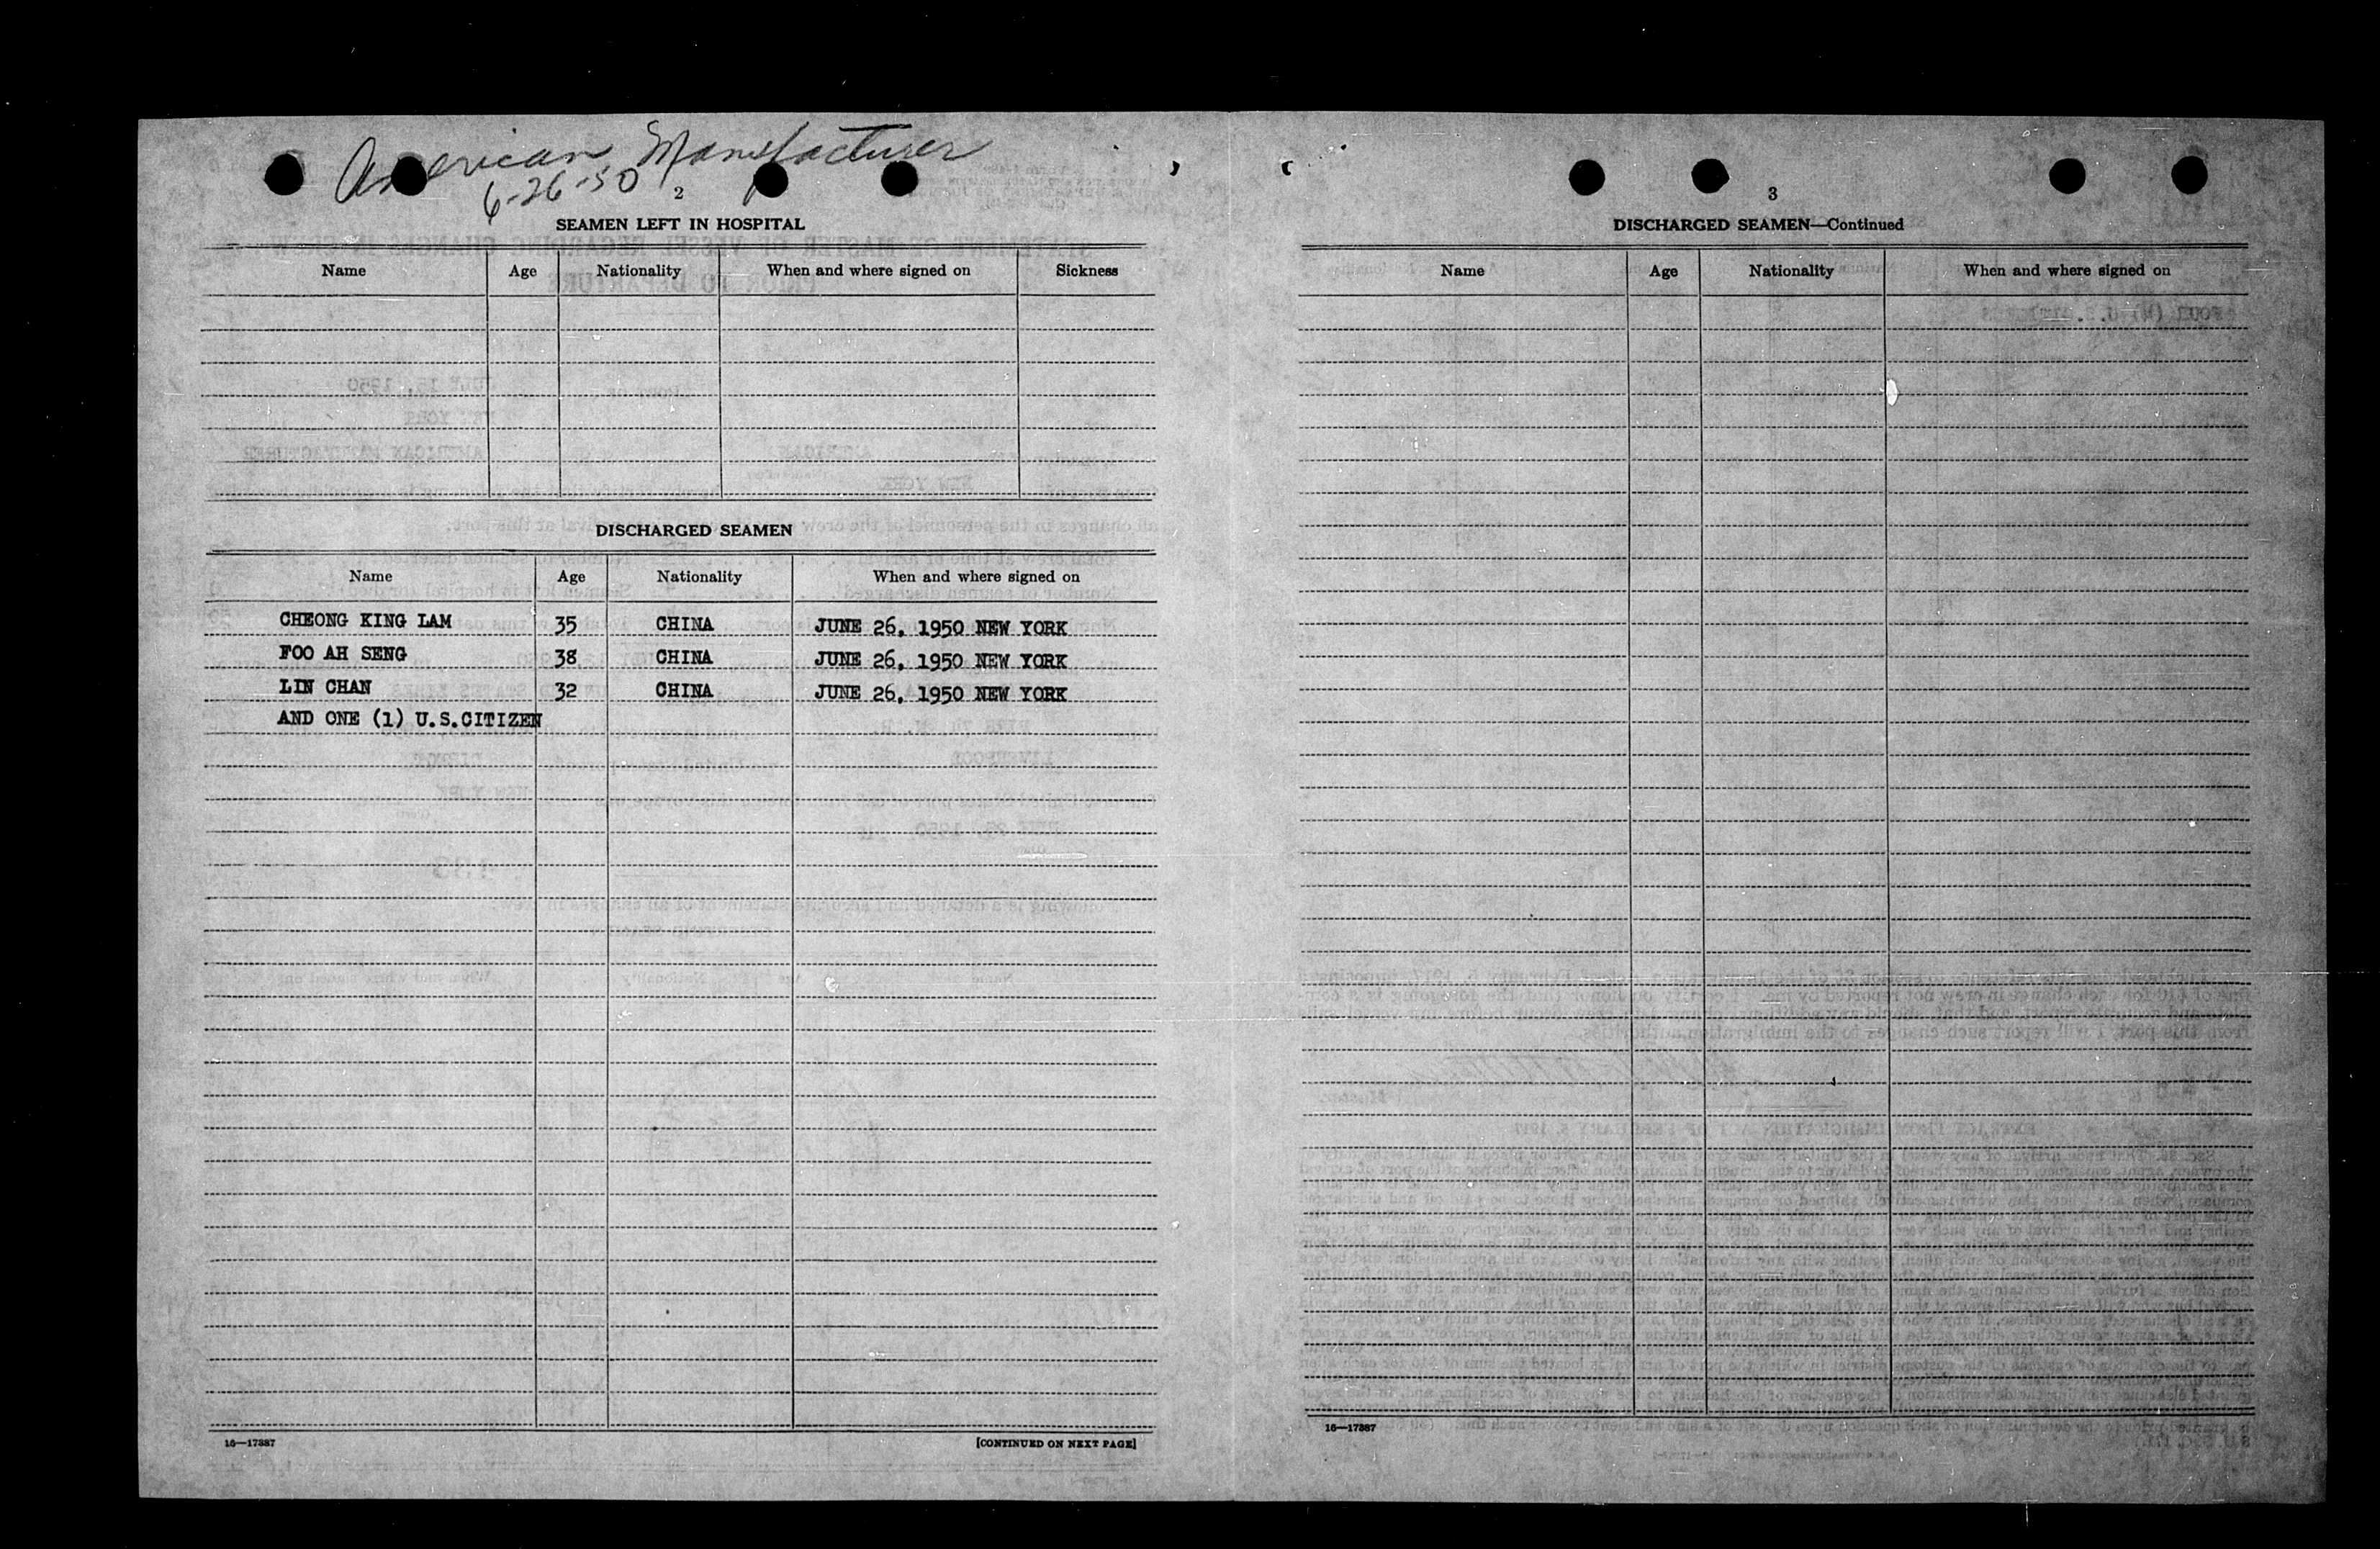 American Manufacturer
6-26-50
2
SEAMEN LEFT IN HOSPITAL
Name Age Nationality When and where signed on Sickness
DISCHARGED SEAMEN
Name Age Nationality When and where signed on
CHEONG KING LAM 35 CHINA JUNE 26, 1950 NEW YORK
FOO AH SENG 38 CHINA JUNE 26, 1950 NEW YORK
LIN CHAN 32 CHINA JUNE 26, 1950 NEW YORK
AND ONE (1) U.S.CITIZEN
16—17387
[CONTINUED ON NEXT PAGE]
3
DISCHARGED SEAMEN—Continued
Name Age Nationality When and where signed on
16—17387